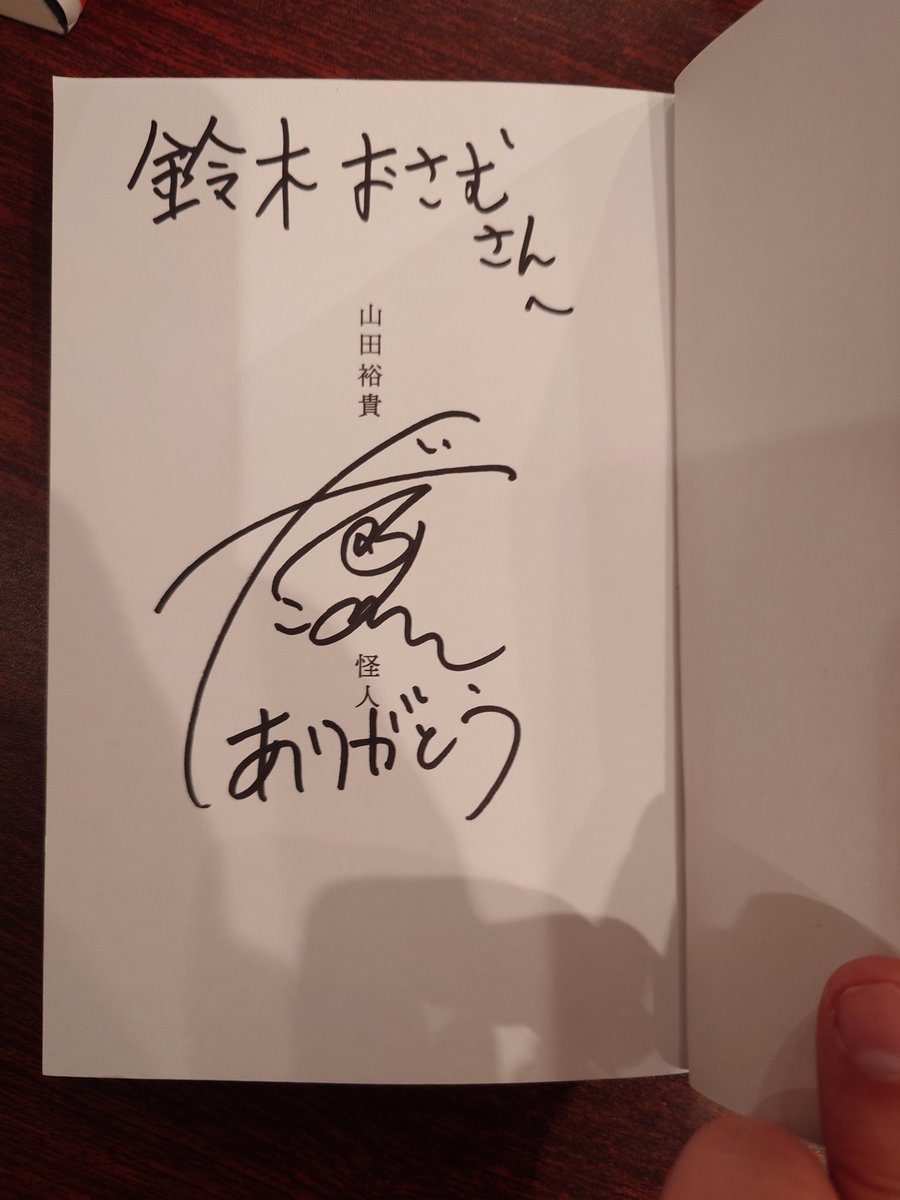 鈴木おさむ
さん
へ
山田裕貴
怪人
ありがとう